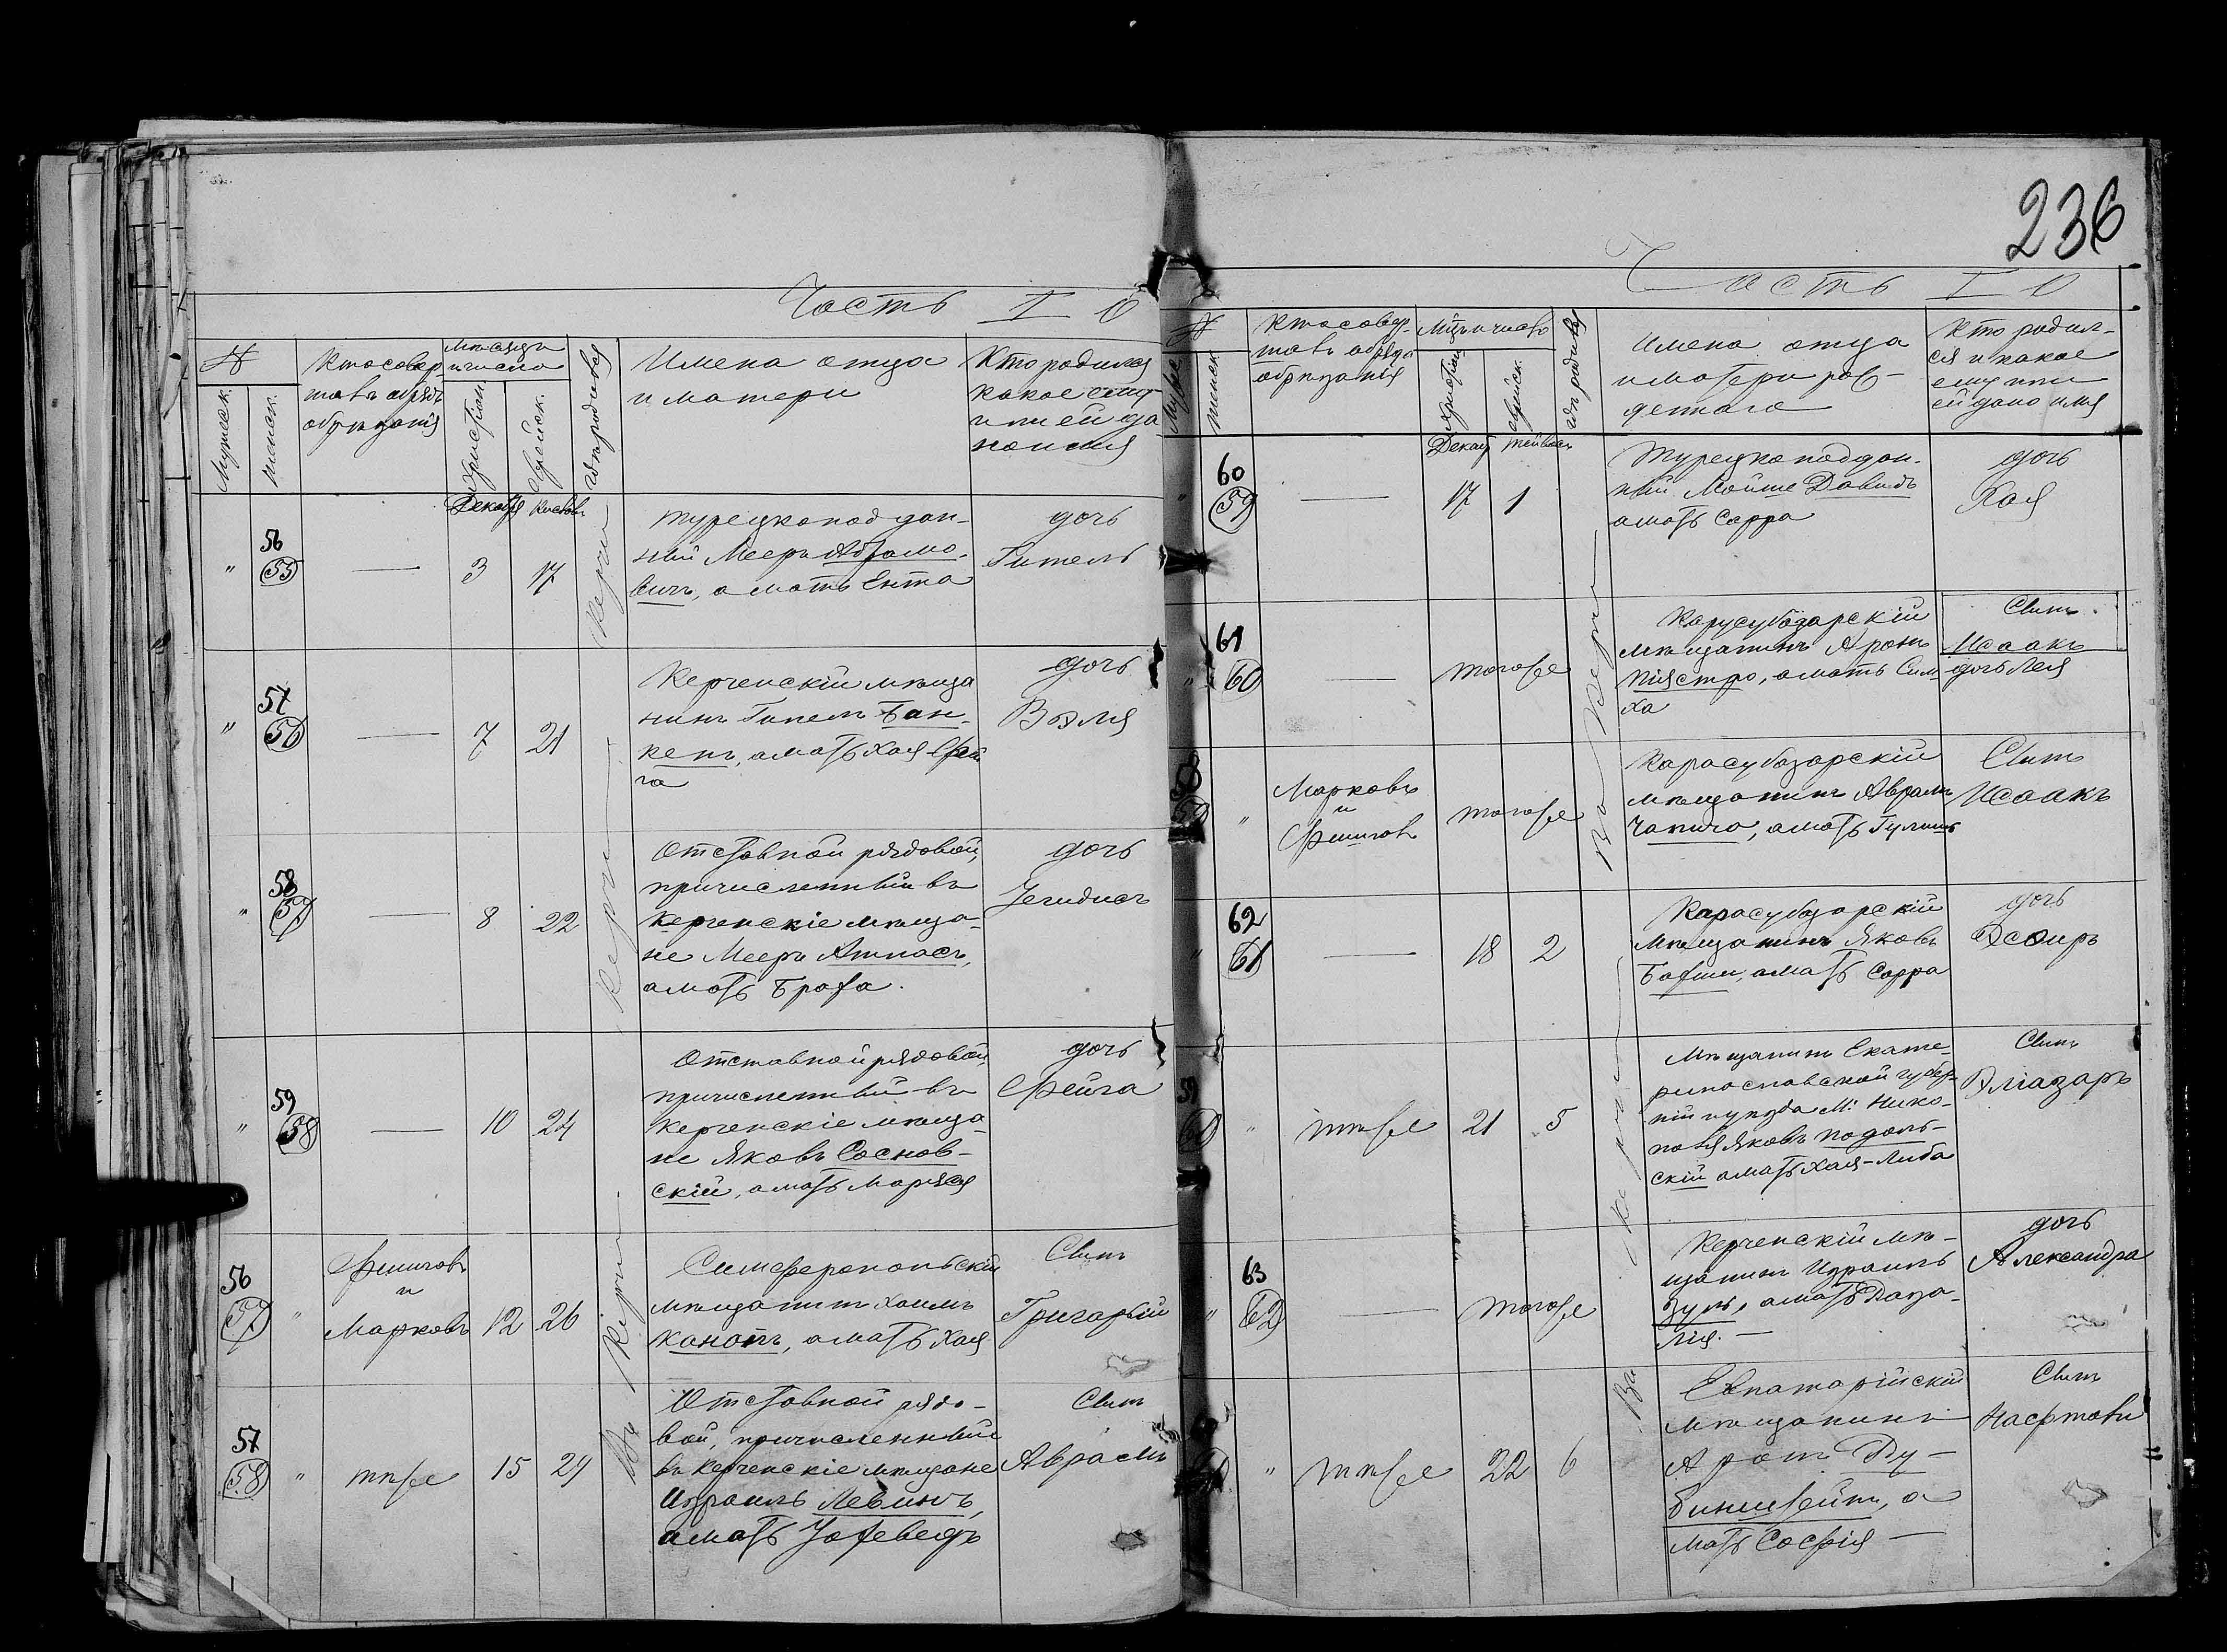 Часть I О
№
Мужеск.
Женск.
Кто совер-
шавъ обрядъ
обрѣзанія
Мѣсяцъ
и число
Христіан.
Еврейск.
Гдѣ родился
Имена отца
и матери
Кто родился
какое ему
или ей да
но имя
Декабр
56
"
55
—
3
17
Керчи
Турецкоподдан-
ный Мееръ Абрамо-
вичъ, а мать Ента
дочь
Гитель
57
"
56
—
7
21
Керченскій мѣща
нинъ
кенъ, а мать Хая Фей
га
дочь
Вэля
58
"
57
—
8
22
Керчи
Отставной рядовой,
причисленный въ
Керченскіе мѣща-
не Мееръ Атласъ,
а мать Браха.
дочь
59
"
58
—
10
24
Отставной рядовой,
причисленный въ
Керченскіе мѣща-
не Яковъ Соснов-
скій, а мать Маріяся
дочь
Фейга
56
57
"
и
Марковъ
12
26
Керчи
Симферопольскій
мѣщанинъ Хаимъ
Канотъ, а мать Хая
Сынъ
Григорый
57
58
"
тѣже
15
29
Отставной рядо-
вой, причисленный
въ Керченскіе мѣщане
Израиль Левинъ,
а мать Іохеведъ
Сынъ
Аврамъ
236
Часть I О
№
Мужес
Женск.
Кто совер-
шавъ обряда
обрѣзанія
Мѣс. и число
Христіан
Еврейск.
Гдѣ родился
Имена отца
и матери рож-
деннаго
Кто родил-
ся и какое
ему или
ей дано имя
Декаб Тейвесъ
60
"
59
—
17
1
Турецкоподдан-
ный Мойше Давидъ
а мать Сарра
дочь
Хая
61
"
60
—
тогоже
Въ Керчи
Карусубазарскій
мѣщанинъ Аронъ
Піястро, а мать Сим-
ха
Сынъ
Исаакъ
дочь Лея
"
Марковъ
и
тогоже
Карасубазарскій
мѣщанинъ Аврамъ
Чапичо, а мать Гулишъ
Сынъ
Исаакъ
62
"
61
—
18
2
Карасубазарскій
мѣщанинъ Яковъ
Бахши, а мать Сарра
дочь
Эсѳирь
59
"
тѣже
21
5
Керчи
Мѣщанинъ Екате-
ринославской губер-
ніи и уѣзда М: Нико-
поля Яковъ Подоль-
скій а мать Хая-Либа
Сынъ
Эліазаръ
63
"
62
—
тогоже
Керченскій мѣ-
щанинъ Израиль
Зуль, а мать Роза-
лія. —
дочь
Александра
"
тѣже
22
6
Въ
Евпаторійскій
мѣщанинъ
Аронъ Ду-
бинштейнъ, а
мать Софія —
Сынъ
Нафтоли